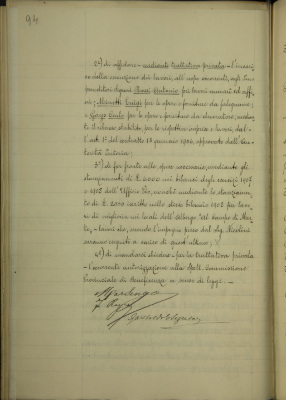 94
2°) di affidare - mediante trattativa privata - l'incari-
co della esecuzione dei lavori, all'uopo occorrenti, agli Im-
prenditori signori Rossi Antonio pei lavori murari ed affi-
ni; Minetti Luigi per le opere e forniture da falegname;
e Giorgi Carlo per le opere e forniture da
lo il ribasso stabilito per le rispettive imprese e lavori, dal-
l'art. 1° del contratto 13 gennaio 1904, approvato dall'Au-
torità Tutoria;
3°) di far fronte alle spese necessarie, mediante gli
stanziamenti di £. 2000 nei bilanci degli esercizi 1907
e 1908 dell'Ufficio Pio, nonché mediante lo stanziamen-
to di £. 2000 iscritto nello stesso bilancio 1908 per lavo-
ri di miglioria nei locali dell'
, secondo l'impegno preso dal Sig. Nicolini
eseguiti a carico di quest'ultimo;
4°) di domandare intanto - per la trattativa privata -
l'occorrente autorizzazione alla Spett. Commissione
Provinciale di Beneficenza ai sensi di legge. -